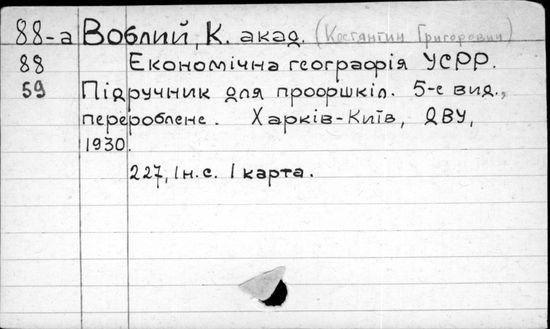 88-а Воблий, К. акад. (Костянтин Григорович)
88 Економічна географія УСРР.
59 Підручник для профшкіл. 5-е вид.,
перероблене. Харків-Київ, ДВУ,
1930.
227, 1 н.с. 1 карта.